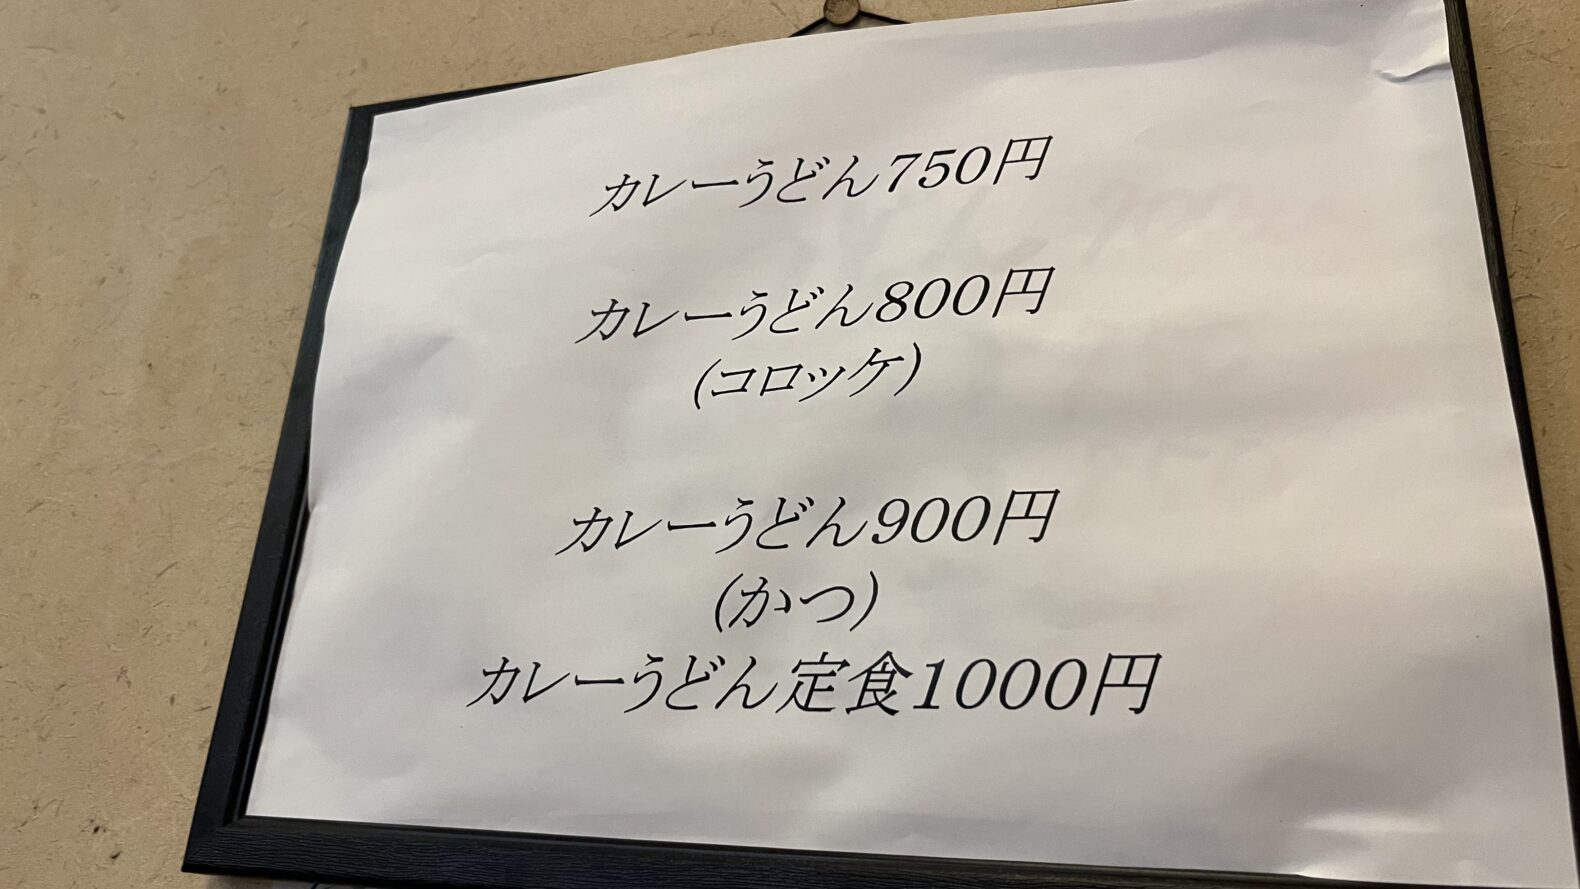 カレーうどん750円
カレーうどん800円
(コロッケ)
カレーうどん900円
(かつ)
カレーうどん定食1000円